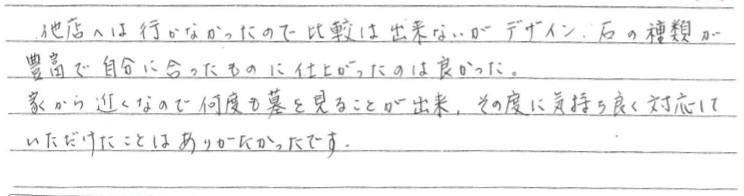 他店へは行かなかったので比較は出来ないが デザイン、石の種類が
豊富で自分に合ったものに仕上がったのは良かった。
家から近くなので何度も墓を見ることが出来、その度に気持ち良く対応して
いただけたことはありがたかったです.